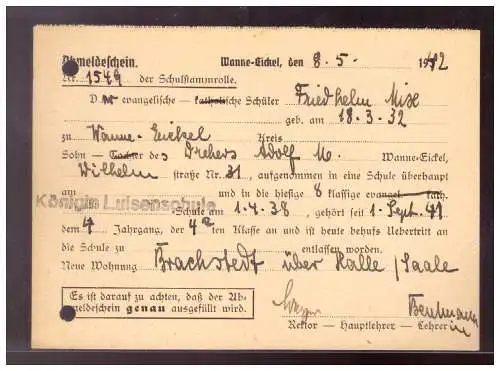 Abmeldeschein. Wanne-Eickel, den 8. 5. 1942
Nr. 1549 der Schulstammrolle.
Der evangelische — katholische Schüler Friedhelm
geb. am 18. 3. 32
zu Wanne-Eickel Kreis
Sohn — Tochter des Drehers Adolf M. Wanne-Eickel,
Wilhelm straße Nr. 31, aufgenommen in eine Schule überhaupt
am und in die hiesige 8 klassige evangel. — kath.
Königin Luisenschule
Schule am 1. 4. 38, gehört seit 1. Sept. 41
dem 4 Jahrgang, der 4ten Klasse an und ist heute behufs Uebertritt an
die Schule zu entlassen worden.
Neue Wohnung Brachstedt über Halle / Saale
Es ist darauf zu achten, daß der Ab-
meldeschein genau ausgefüllt wird.
Rektor — Hauptlehrer — Lehrerin